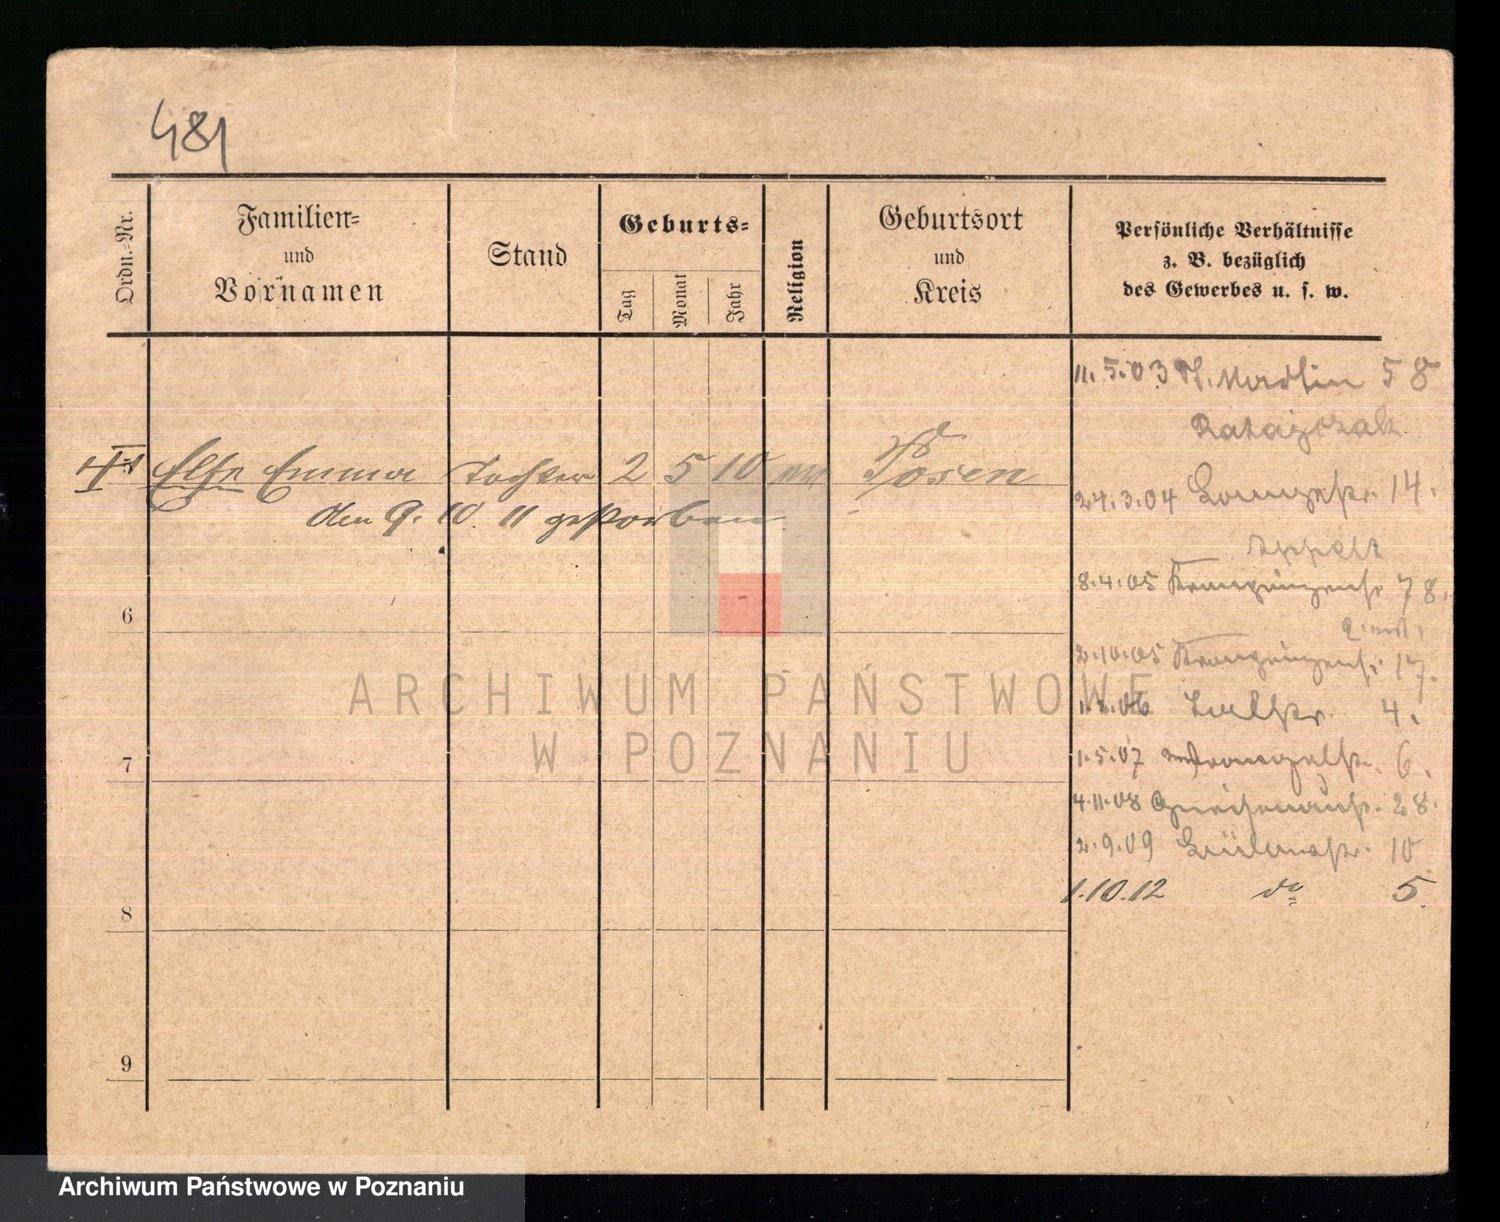 481
Ordn.-Nr.
Familien-
und
Vornamen
Stand
Geburts-
Tag
Monat
Jahr
Religion
Geburtsort
und
Kreis
Persönliche Verhältnisse
z. B. bezüglich
des Gewerbes u. s. w.
11.5.03 St. Martin 58
Ratajczak
Else Emma Tochter 2 5 10 Posen
den 9. 10. 11 gestorben
24.3.04 14.
8.4.05 Kronprinzenstr. 78.
2.10.05 Kronprinzenstr. 17.
4.
1.5.07 6.
4.11.08 Gneisenaustr. 28.
2.9.09 10
1.10.12 do 5.
6
7
8
9
ARCHIWUM PAŃSTWOWE
W POZNANIU
Archiwum Państwowe w Poznaniu